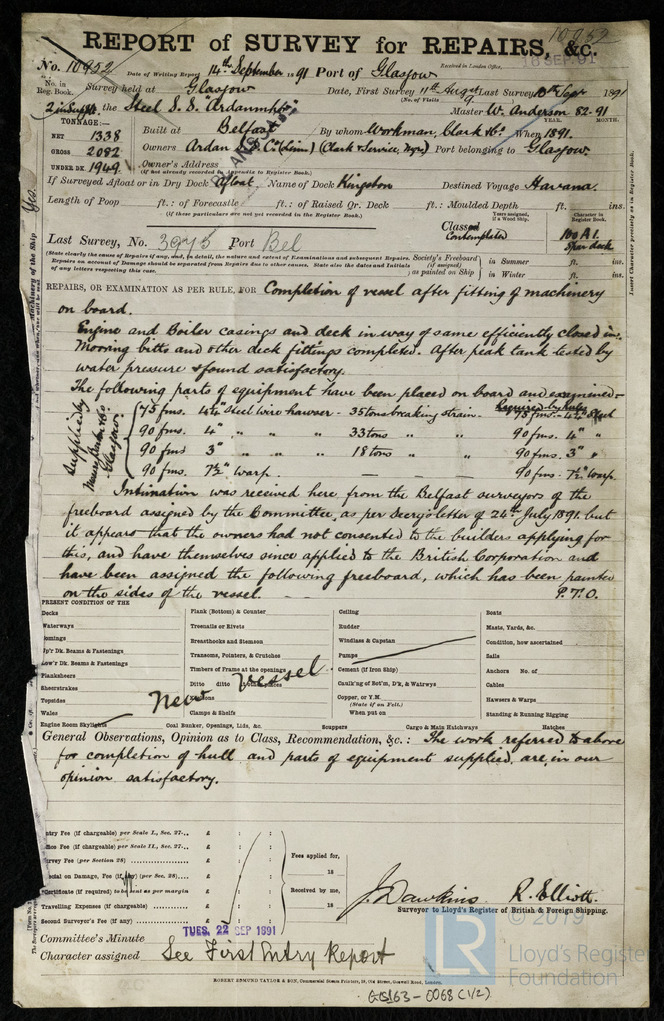 10952
REPORT of SURVEY for REPAIRS, &c.
No. 10952 Date of Writing Report 14th September 1891 Port of Glasgow Received in London Office, 18 SEP. 91
No. in Reg. Book. Survey held at Glasgow Date, First Survey 11th Augt Last Survey 10th Sep 1891
(No. of Visits 9)
2 in Suppt. the Steel S.S. "Ardanmhor" Master W. Anderson 82-91
YEAR. MONTH.
TONNAGE:—
NET 1338 Built at Belfast By whom Workman, Clark & Co. When 1891.
GROSS 2082 Owners Ardan S.S. Co. (Lim) (Clark & Service, Mgrs) Port belonging to Glasgow
UNDER DK. 1949 Owner's Address
(if not already recorded in Appendix to Register Book.)
If Surveyed Afloat or in Dry Dock Afloat. Name of Dock Kingston Destined Voyage Havana.
Length of Poop ft.: of Forecastle ft.: of Raised Qr. Deck ft.: Moulded Depth ft. ins.
(If these particulars are not yet recorded in the Register Book.)
Years assigned, if a Wood Ship. Character in Register Book.
Classed Contemplated 100 A1. Spar deck
Last Survey, No. 3975 Port Bel
(State clearly the cause of Repairs if any, and, in detail, the nature and extent of Examinations and subsequent Repairs.
Repairs on account of Damage should be separated from Repairs due to other causes. State also the dates and Initials
of any letters respecting this case.
Society's Freeboard (if assigned) as painted on Ship
in Summer ft. ins.
in Winter ft. ins.
REPAIRS, OR EXAMINATION AS PER RULE, FOR Completion of vessel after fitting of machinery
on board.
Engine and Boiler casings and deck in way of same efficiently closed in.
Mooring bitts and other deck fittings completed. After peak tank tested by
water pressure & found satisfactory.
The following parts of equipment have been placed on board and examined—
Required by Rules
75 fms. 4½" Steel wire hawser - 35 tons breaking strain. - 75 fms. - 4½" Steel
90 fms. 4" " " " 33 tons " " 90 fms. 4" "
90 fms 3" " " " 18 tons " " 90 fms. 3" "
90 fms. 7½" Warp. — — — 90 fms. 7½" Warp.
Supplied by
Glasgow.
Intimation was received here from the Belfast surveyors of the
freeboard assigned by the Committee, as per Secry's letter of 24th July 1891. but
it appears that the owners had not consented to the builders applying for
this, and have themselves since applied to the British Corporation and
have been assigned the following freeboard, which has been painted
on the sides of the vessel. P.T.O.
PRESENT CONDITION OF THE
Decks
Waterways
Comings
Up'r Dk. Beams & Fastenings
Low'r Dk. Beams & Fastenings
Planksheers
Sheerstrakes
Topsides
Wales
Engine Room Skylights
Plank (Bottom) & Counter
Treenails or Rivets
Breasthooks and Stemson
Transoms, Pointers, & Crutches
Timbers of Frame at the openings
Ditto ditto
Clamps & Shelfs
Coal Bunker, Openings, Lids, &c.
Ceiling
Rudder
Windlass & Capstan
Pumps
Cement (if Iron Ship)
Caulk'ng of Bot'm, D'k, & Watrwys
Copper, or Y.M.
(State if on Felt.)
When put on
Scuppers
Cargo & Main Hatchways
Boats
Masts, Yards, &c.
Condition, how ascertained
Sails
Anchors No. of
Cables
Hawsers & Warps
Standing & Running Rigging
Hatches
New vessel
General Observations, Opinion as to Class, Recommendation, &c.: The work referred to above
for completion of hull and parts of equipment supplied, are, in our
opinion satisfactory.
Entry Fee (if chargeable) per Scale I., Sec. 27... £ : :
Office Fee (if chargeable) per Scale II., Sec. 27... £ : :
Survey Fee (per Section 28) £ : :
Special on Damage, Fee (if any) (per Sec. 28) £ : :
*Certificate (if required) to be sent as per margin £ : :
Travelling Expenses (if chargeable) £ : :
Second Surveyor's Fee (if any) £ : :
Fees applied for,
18
Received by me,
18
J. Dawkins R. Elliott.
Surveyor to Lloyd's Register of British & Foreign Shipping.
TUES. 22 SEP 1891
Committee's Minute
Character assigned See First Entry Report
© 2019
LR
Lloyd's Register
Foundation
ROBERT EDMUND TAYLOR & SON, Commercial Steam Printers, 19, Old Street, Goswell Road, London.
GLS163-0068 (1/2)